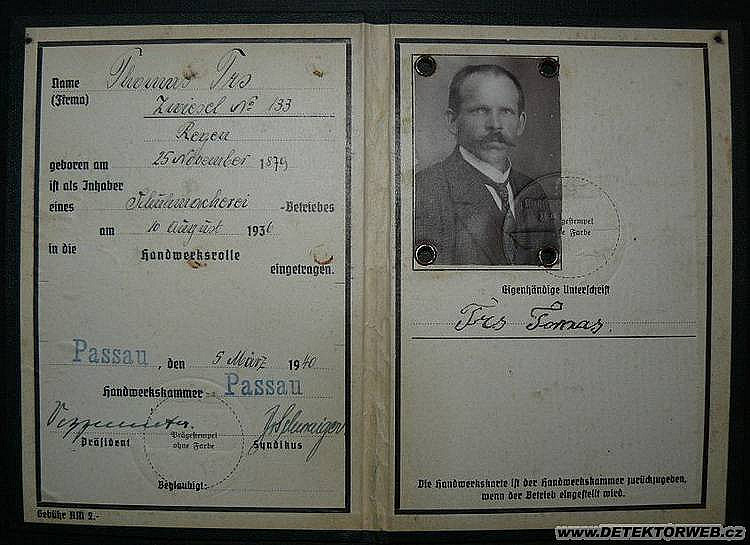 Name Thomas Trs
(Firma) Zwiesel No 133
Regen
geboren am 25 November 1879
ist als Inhaber
eines Schuhmacherei -Betriebes
am 10 August 1936
in die Handwerksrolle
eingetragen.
Passau, den 5 März 1940
Handwerkskammer Passau
Präsident Prägestempel ohne Farbe Syndikus
Beglaubigt:
Gebühr RM 2.-
Prägestempel
ohne Farbe
Eigenhändige Unterschrift
Trs Tomas.
Die Handwerkskarte ist der Handwerkskammer zurückzugeben,
wenn der Betrieb eingestellt wird.
www.DETEKTORWEB.cz